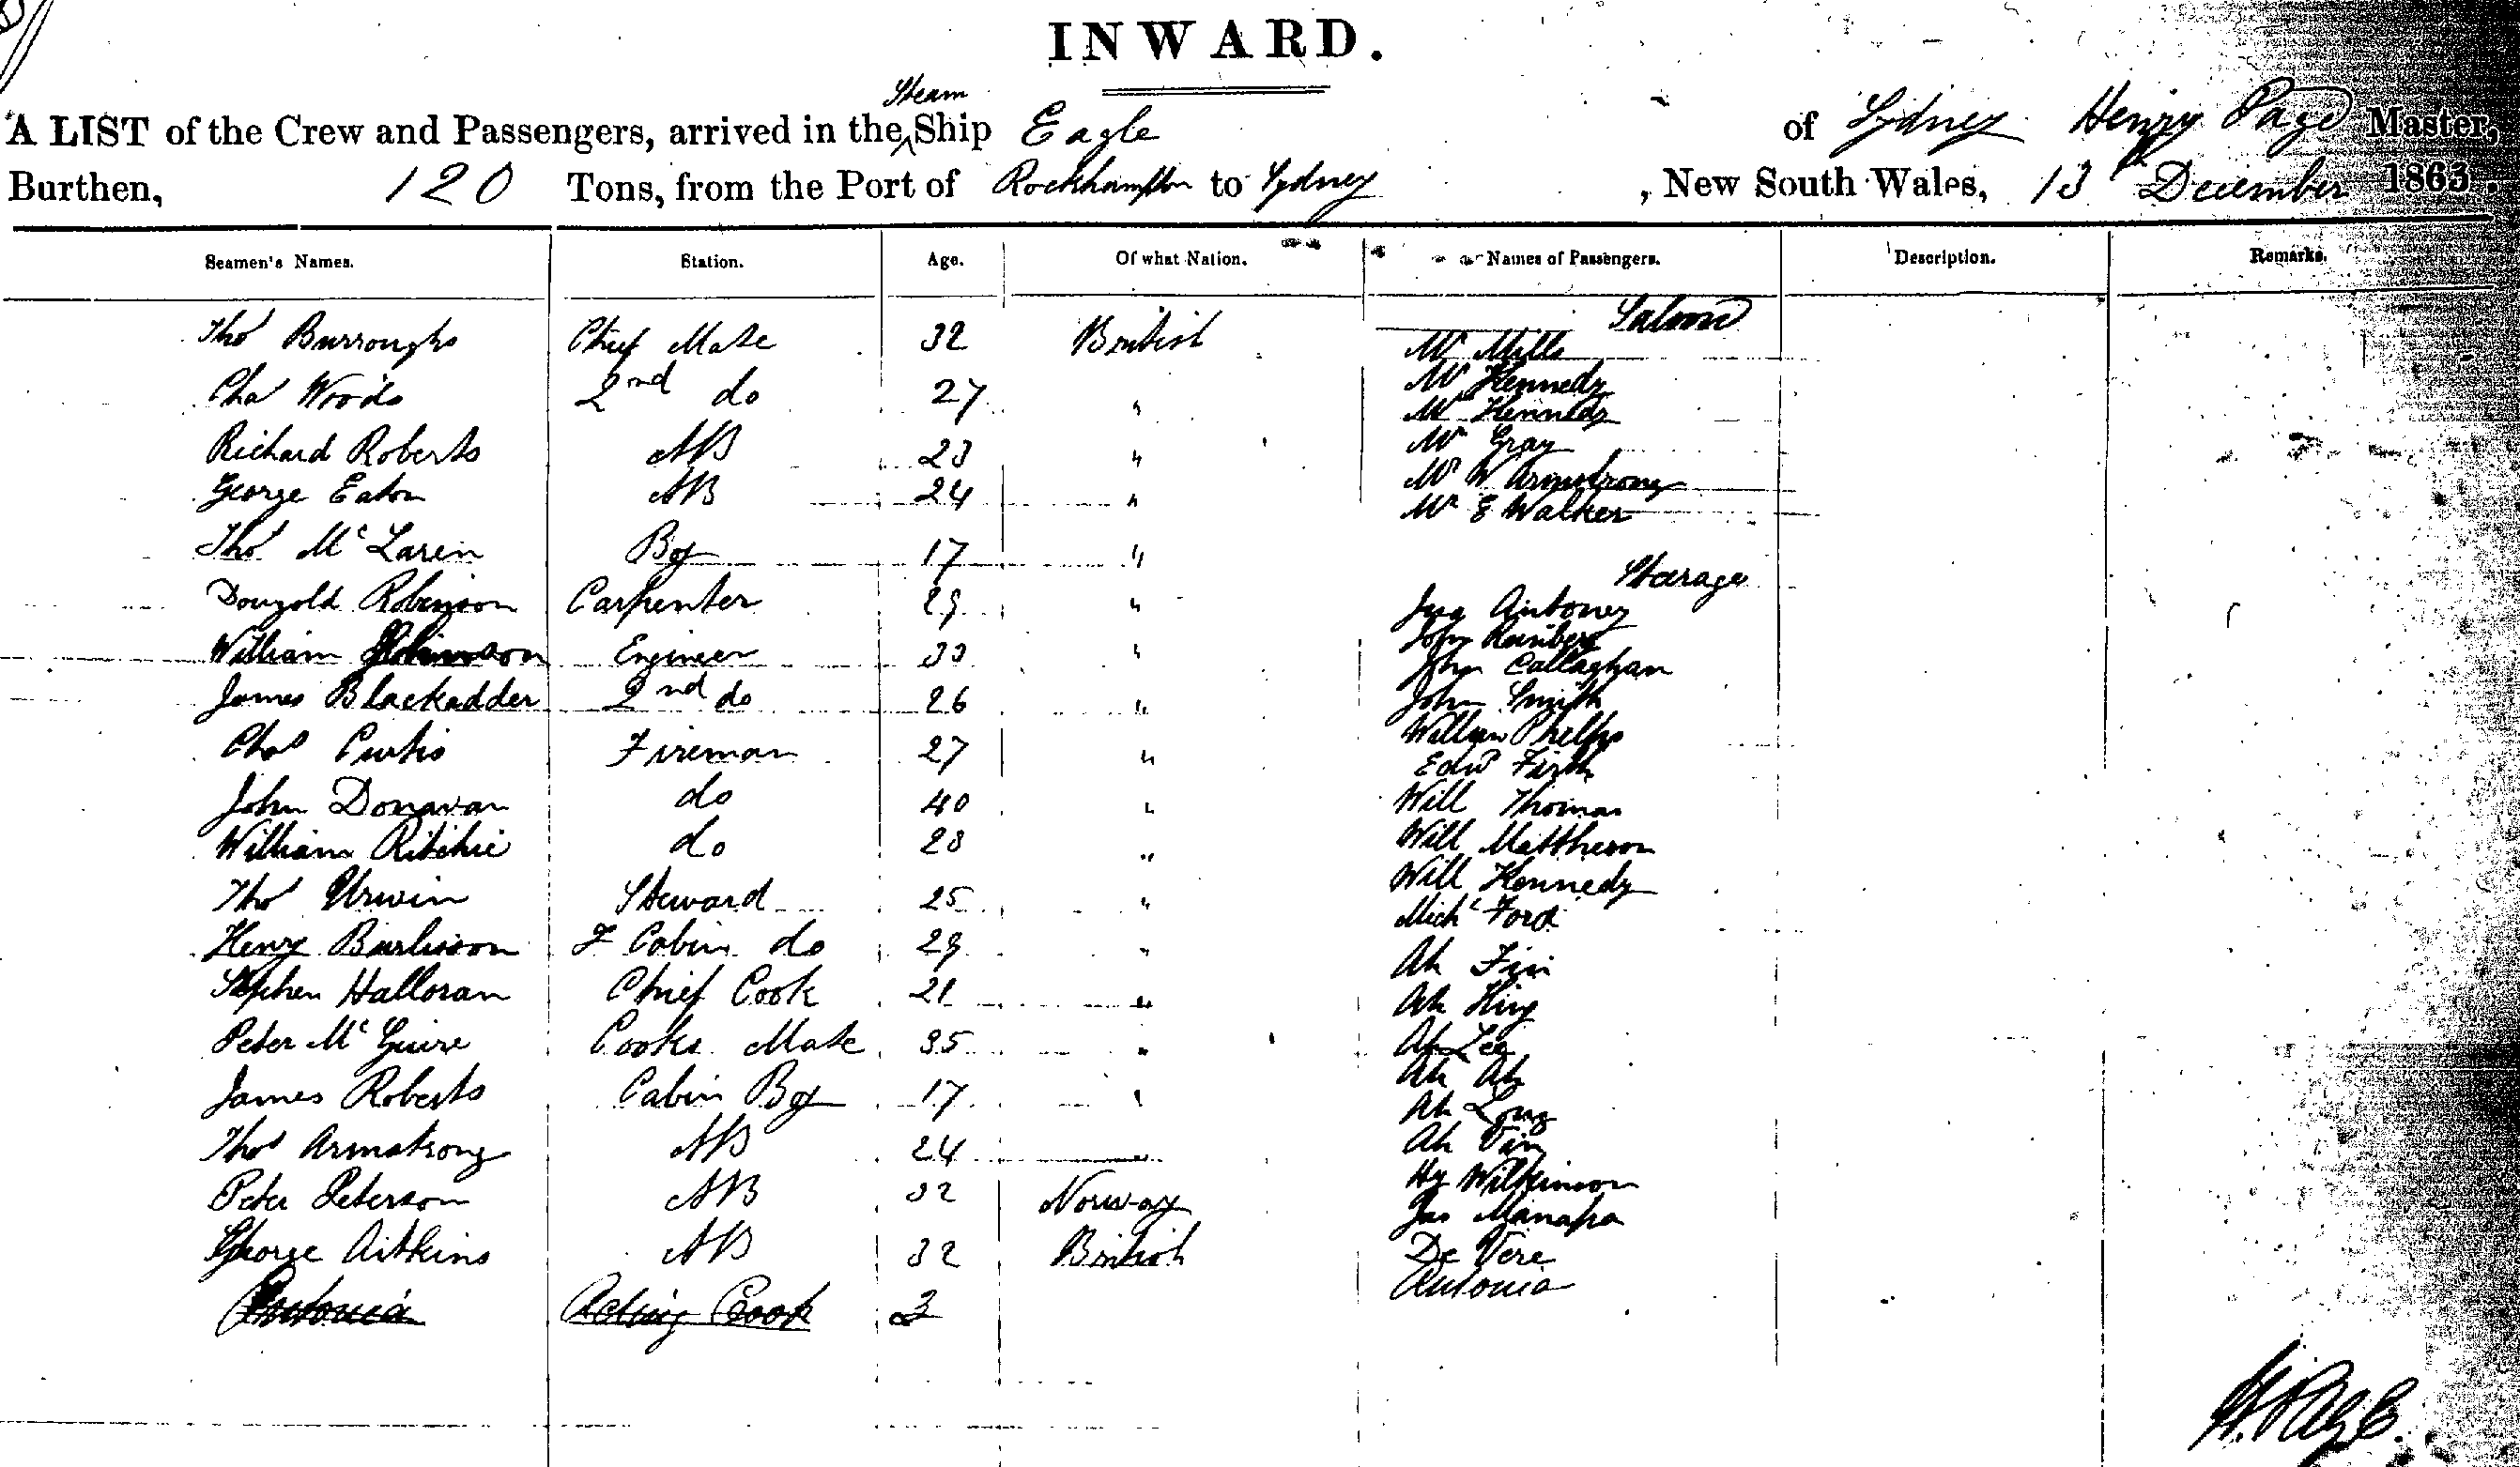 INWARD.
Steam
A LIST of the Crew and Passengers, arrived in the ^ Ship Eagle of Sydney Henry Page Master,
Burthen, 120 Tons, from the Port of Rockhampton to Sydney, New South Wales, 13th December 1863.
Seamen's Names. Station. Age. Of what Nation. Names of Passengers. Description. Remarks.
Saloon
Thos Burroughs Chief Mate 32 British Mr Mills
Mr Kennedy
Chas Woods 2nd do 27 " Mr Kennedy
Mr Gray
Richard Roberts AB 23 " Mr W Armstrong
George Eaton AB 24 " Mr E Walker
Thos McLaren Boy 17 "
Steerage
Dougold Robinson Carpenter 29 " Antoney
John
William Engineer 33 " John Callaghan
James Blackadder 2nd do 26 " John Smith
William Phelps
Chas Curtis Fireman 27 " Edwd Firth
John Donavan do 40 " Will Thomas
William Ritchie do 28 " Will Mattheson
Will Kennedy
Thos Urwin Steward 25 " Michl Ford
Henry Burlisson F Cabin do 29 " Ah Fin
Stephen Halloran Chief Cook 21 " Ah King
Peter McGuire Cooks Mate 35 " Ah Lee
Ah Ah
James Roberts Cabin Boy 17 " Ah Long
Thos Armstrong AB 24 " Ah Van
Peter Peterson AB 32 Norway Hy Wilkinson
Jas Manapa
George Aitkins AB 32 British De Vere
Antonia
Antonia Acting Cook
H. Page.